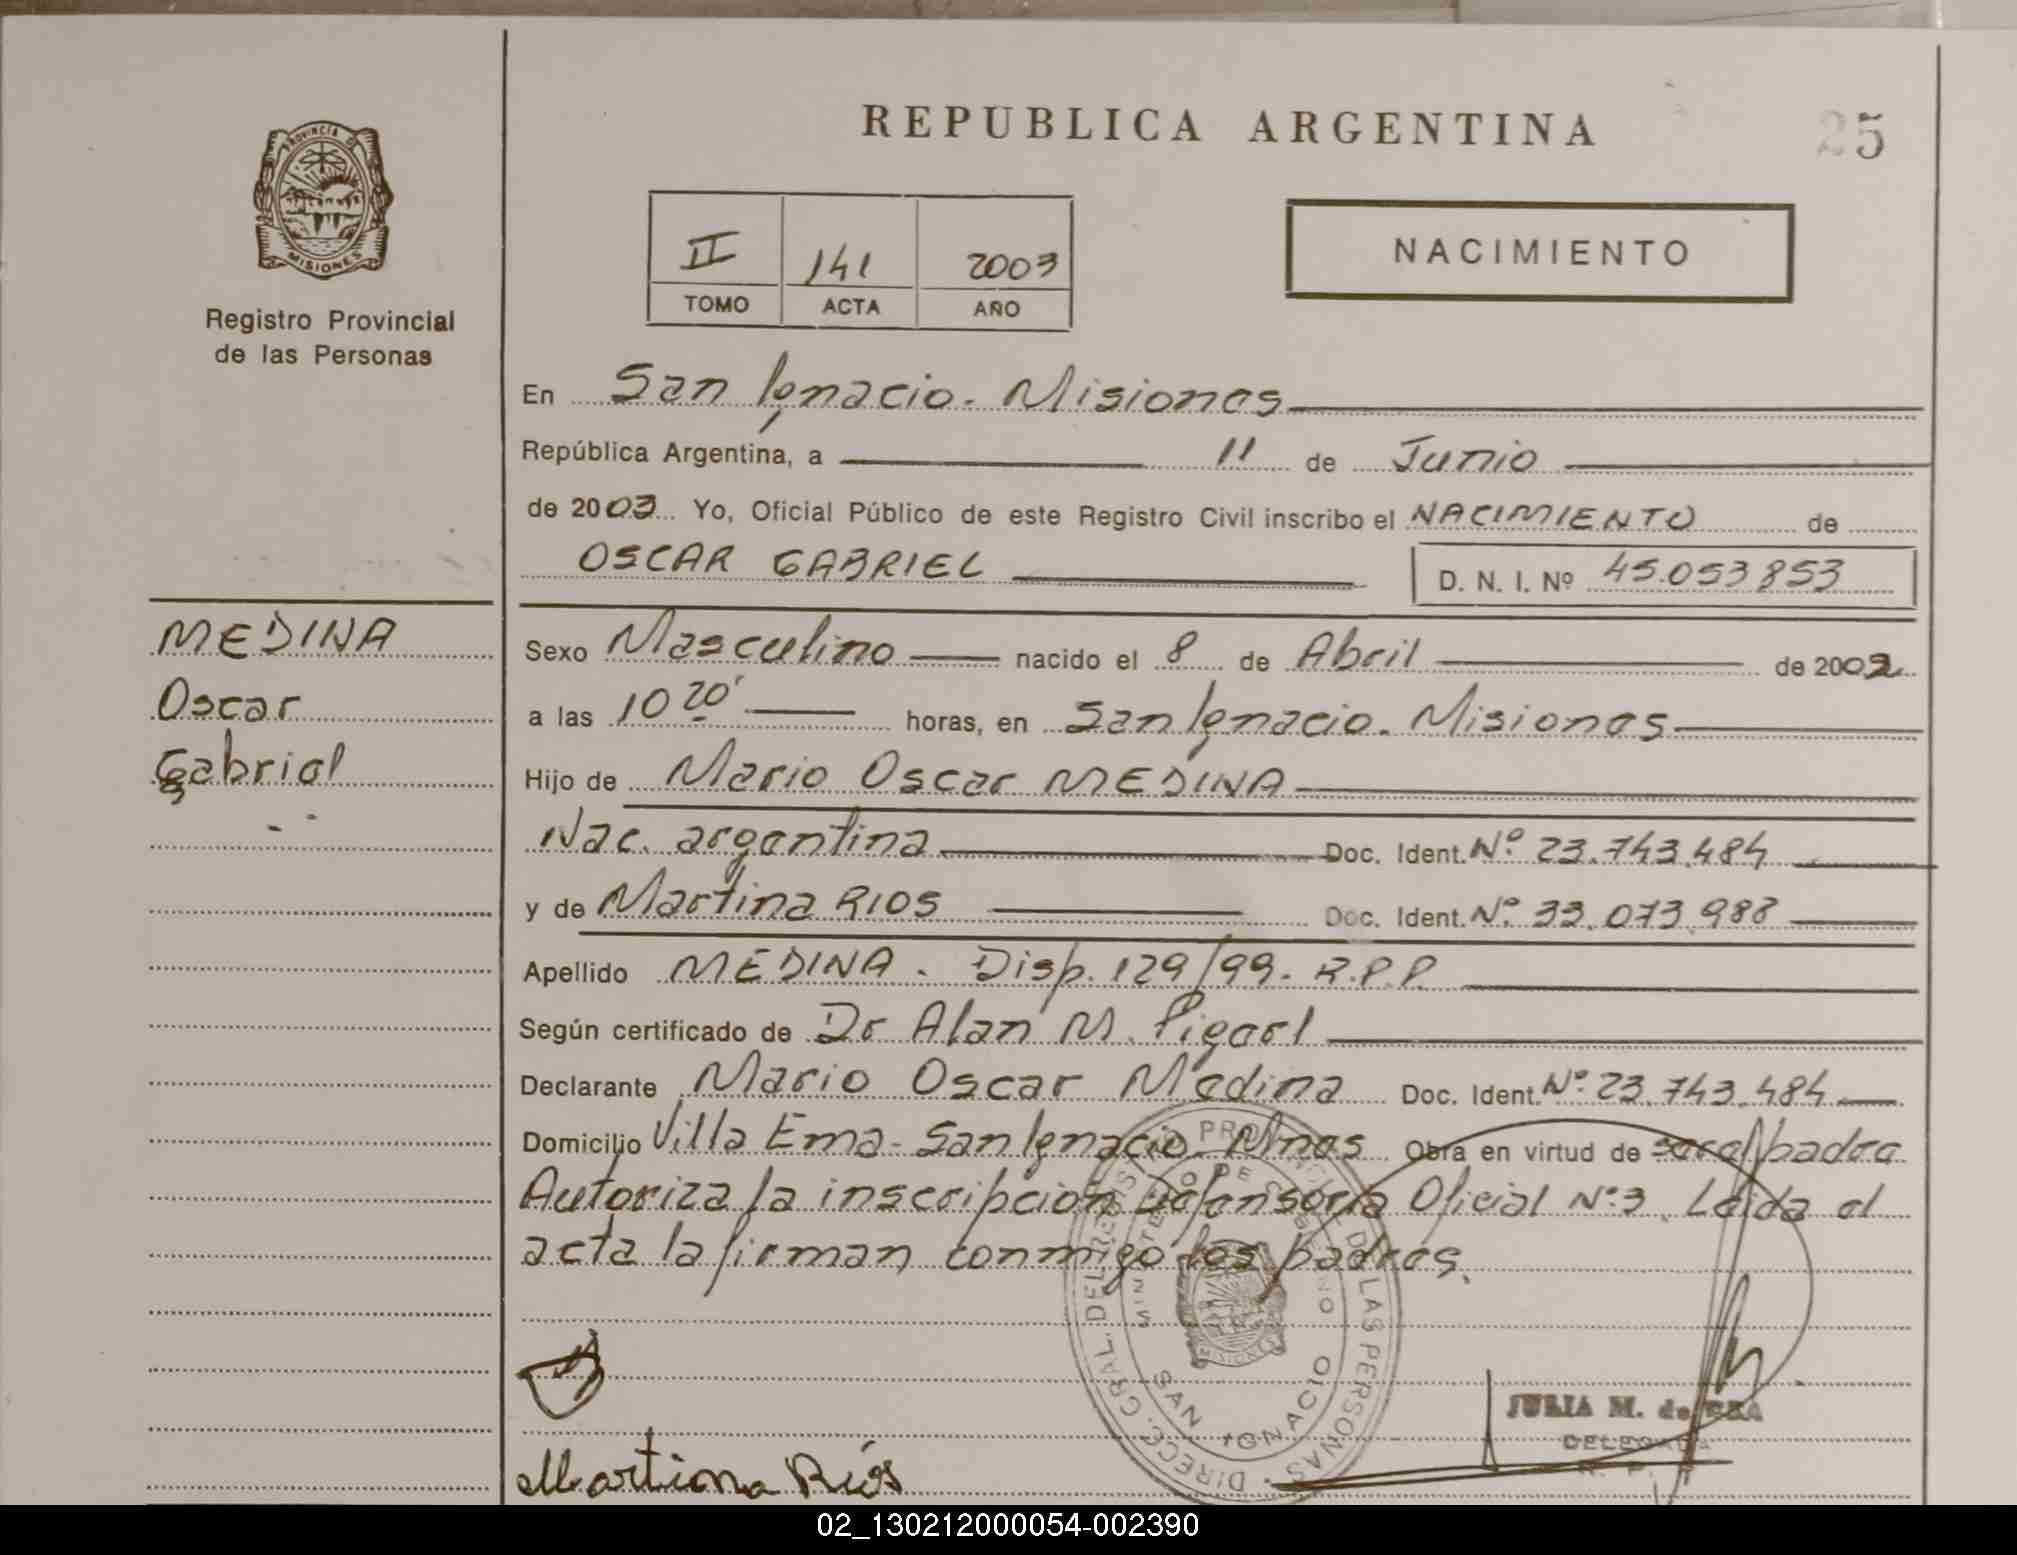 REPUBLICA ARGENTINA
25
PROVINCIA DE
MISIONES
Registro Provincial
de las Personas
II 141 2003
TOMO ACTA AÑO
NACIMIENTO
En San Ignacio. Misiones
República Argentina, a 11 de Junio
de 2003 Yo, Oficial Público de este Registro Civil inscribo el NACIMIENTO de
OSCAR GABRIEL D. N. I. Nº 45.053853
MEDINA
Oscar
Gabriel
Sexo Masculino nacido el 8 de Abril de 2003
a las 10 20' horas, en San Ignacio. Misiones
Hijo de Mario Oscar MEDINA
Nac. argentina Doc. Ident. Nº 23.743.484
y de Martina RIOS Doc. Ident. Nº 33.073.988
Apellido MEDINA. Disp. 129/99. R.P.P.
Según certificado de Dr Alan M.
Declarante Mario Oscar Medina Doc. Ident. Nº 23.743.484
Domicilio Villa Ema - San Ignacio. Mnes Obra en virtud de ser el padre
Autoriza la inscripción Defensoría Oficial Nº3. Leida el
acta la firman conmigo los padres.
DIRECC. GRAL. DEL REGISTRO PROVINCIAL DE LAS PERSONAS
MINISTERIO DE GOBIERNO
MISIONES
SAN IGNACIO
JULIA M. de
DELEGADA
R. P. P.
Martina Ríos
02_130212000054-002390